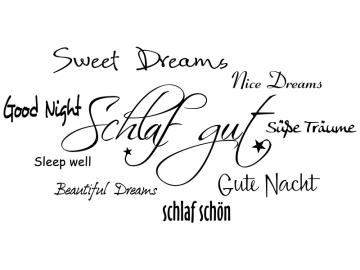 Sweet Dreams
Nice Dreams
Good Night
Schlaf gut
Süße Träume
Sleep well
Beautiful Dreams
Gute Nacht
schlaf schön